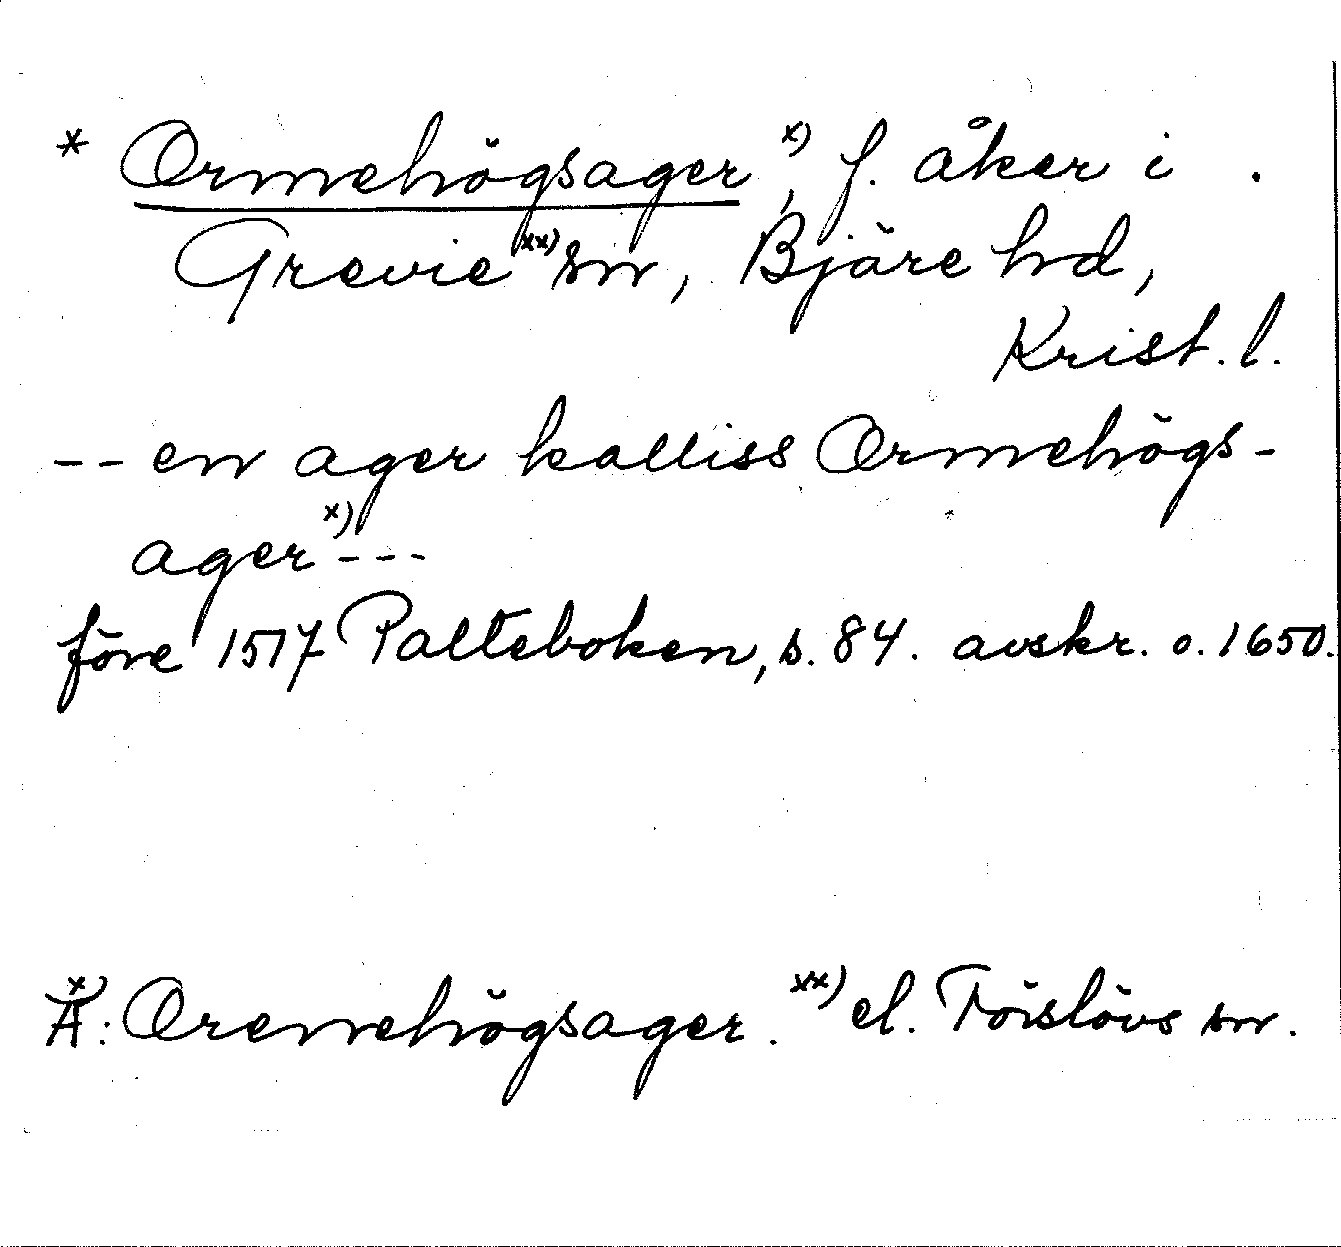 * Ormehögsager x), f. åker i
Grevie xx) sn, Bjäre hd,
Krist. l.
-- en ager kalliss Ormehögs-
ager x) ---
före 1517 Palteboken, s. 84. avskr. o. 1650.
x) Ä: Oremehögsager. xx) el. Förslövs sn.